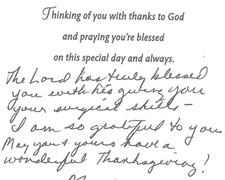 Thinking of you with thanks to God
and praying you're blessed
on this special day and always.
The Lord has truly blessed
you with his giving you
your surgical skills –
I am so grateful to you.
May you & yours have a
wonderful Thanksgiving!